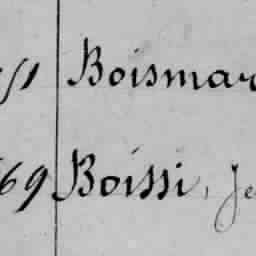 51 Boismar
69 Boissi, Je